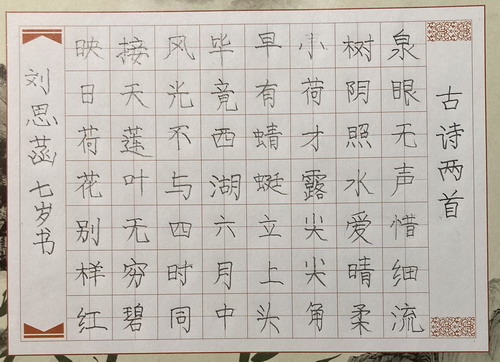 古诗两首
泉眼无声惜细流
树阴照水爱晴柔
小荷才露尖尖角
早有蜻蜓立上头
毕竟西湖六月中
风光不与四时同
接天莲叶无穷碧
映日荷花别样红
刘思菡 七岁书